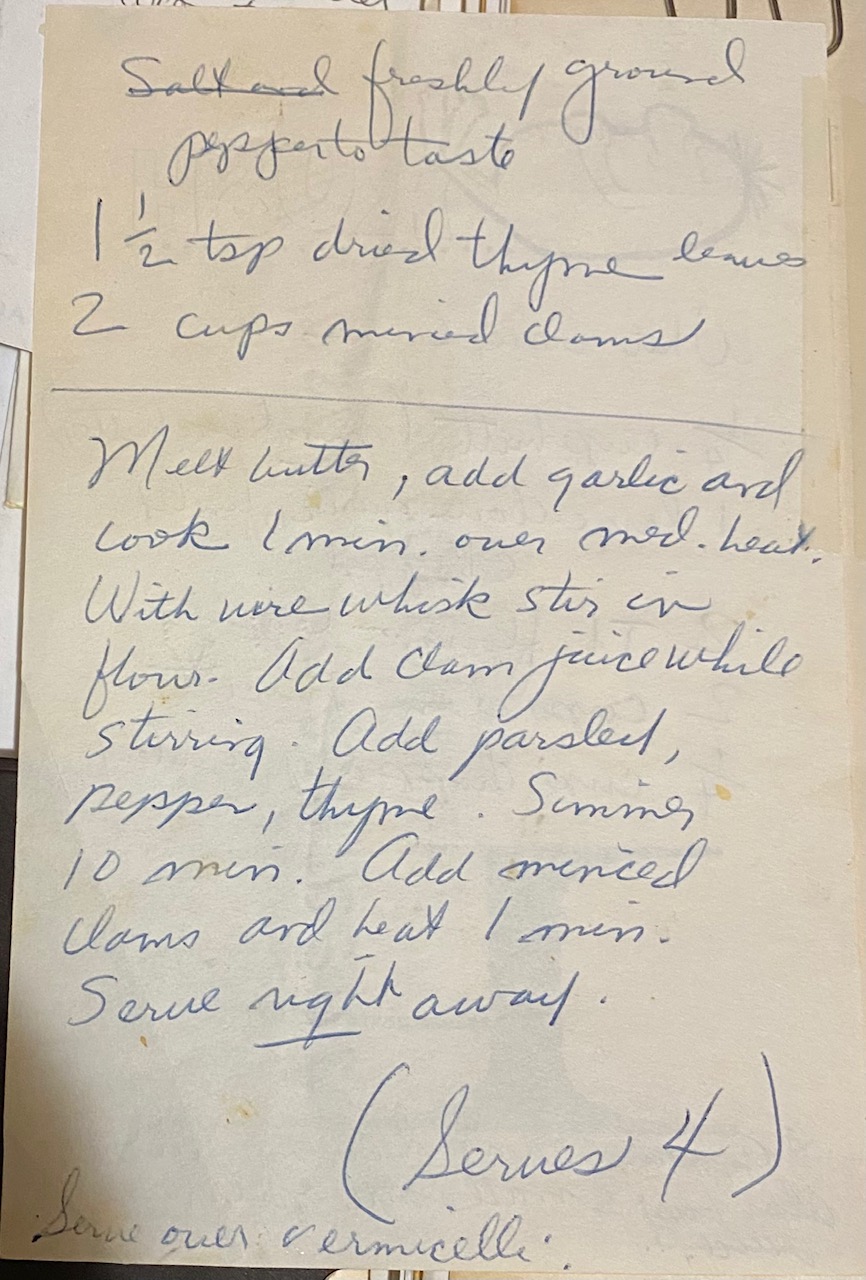 Salt and freshly ground
pepper to taste
1 1/2 tsp dried thyme leaves
2 cups minced clams
Melt butter, add garlic and
cook 1 min. over med. heat.
With wire whisk stir in
flour. Add clam juice while
stirring. Add parsley,
pepper, thyme. Simmer
10 min. Add minced
clams and heat 1 min.
Serve right away.
(Serves 4)
Serve over vermicelli.